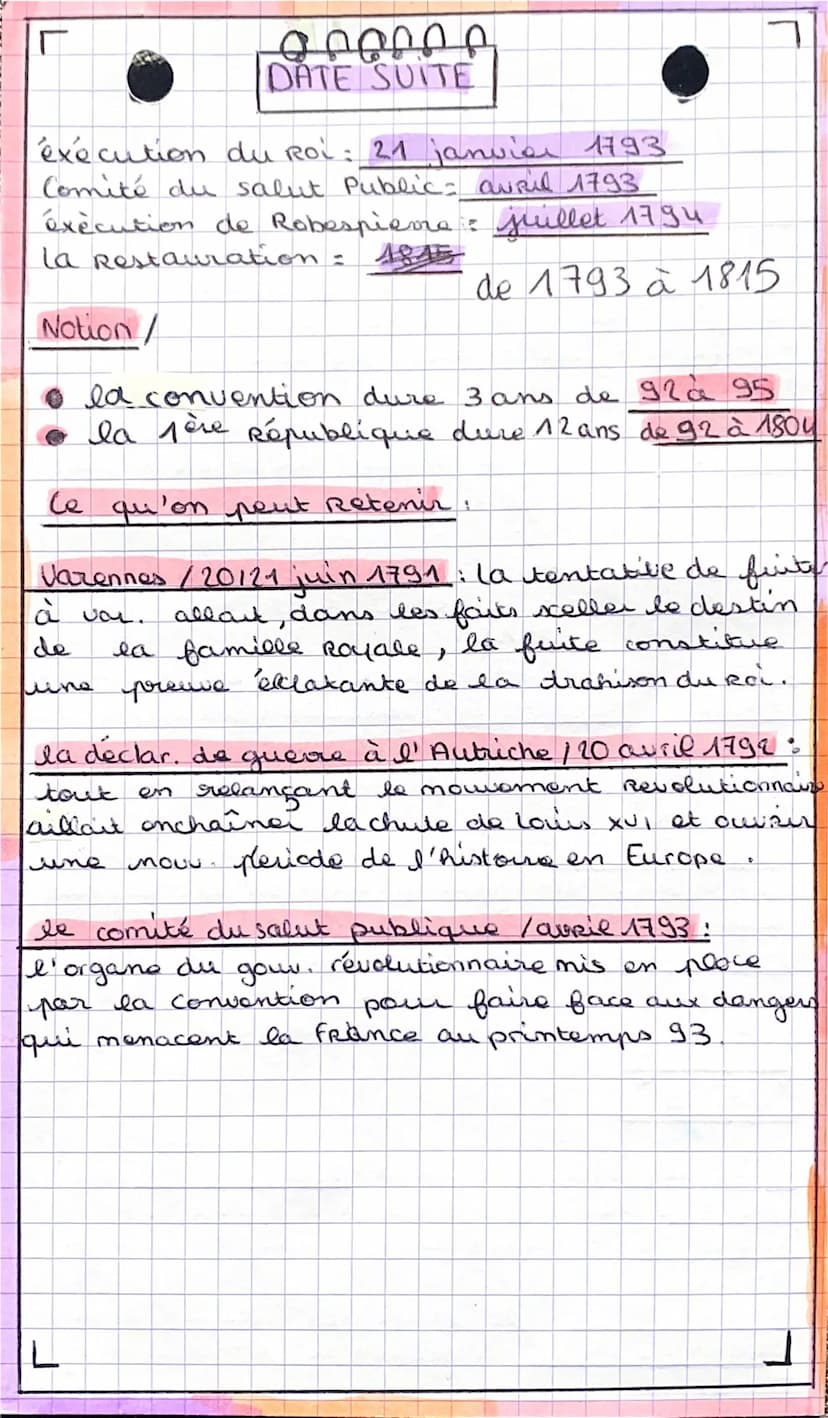 DATE SUITE
éxécution du Roi : 21 janvier 1793
Comité du salut Public = avril 1793
éxècution de Robespierre : juillet 1794
la Restauration = 1815
de 1793 à 1815
Notion /
• la convention dure 3 ans de 92 à 95
• la 1ère République dure 12 ans de 92 à 1804
Ce qu'on peut Retenir :
Varennes / 20/21 juin 1791 : la tentative de fuite
à var. allait, dans les faits sceller le destin
de la famille Royale, la fuite constitue
une preuve éclatante de la trahison du Roi.
la déclar. de guerre à l'Autriche / 20 avril 1792 :
tout en relançant le mouvement Revolutionnaire
aillait enchaîner la chute de Louis XVI et ouvrir
une nouv. période de l'histoire en Europe .
le comité du salut publique / avril 1793 :
l'organe du gouv. révolutionnaire mis en place
par la convention pour faire face aux dangers
qui menacent la France au printemps 93.